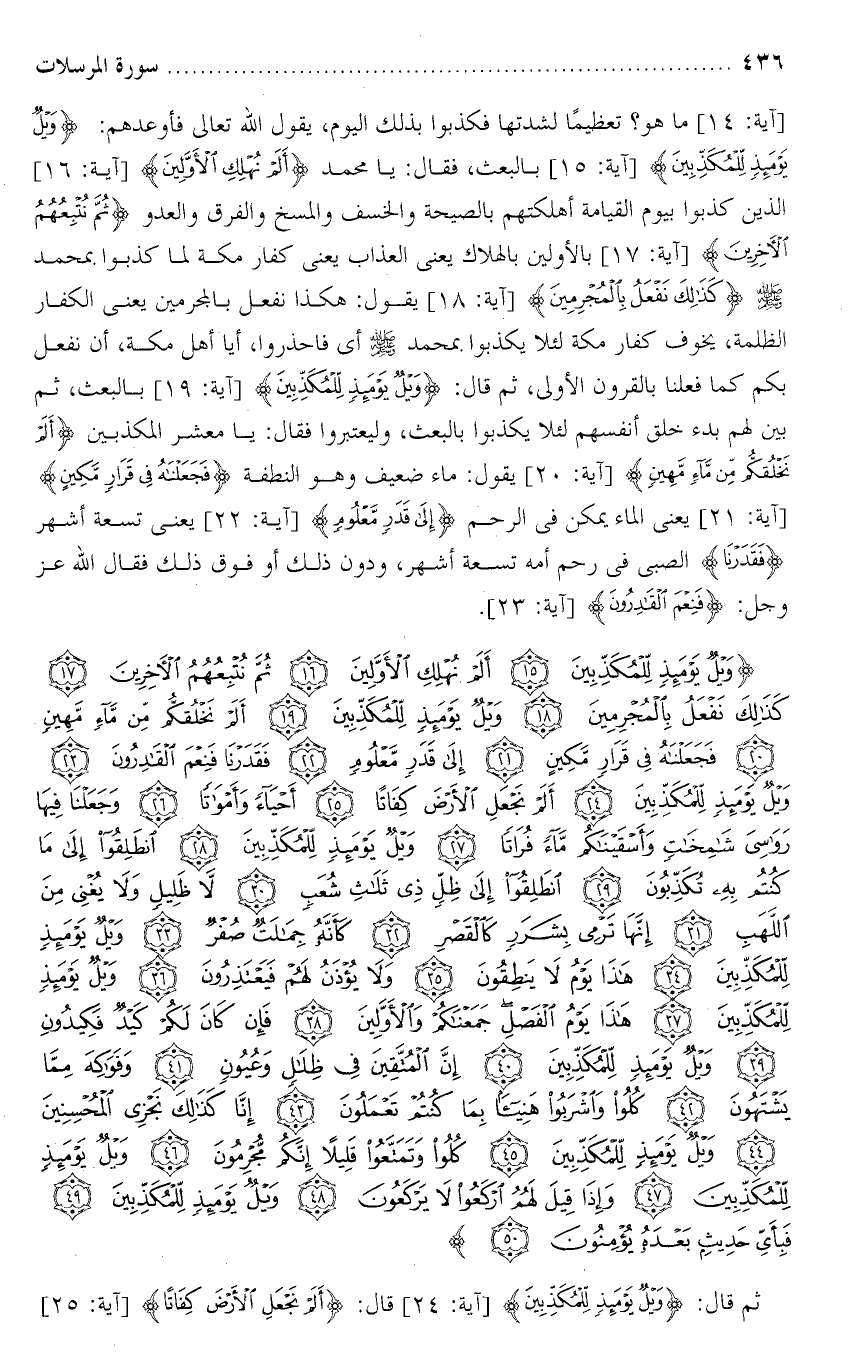 ٤٣٦ ................................................................ سورة المرسلات
[آية: ١٤] ما هو؟ تعظيمًا لشدتها فكذبوا بذلك اليوم، يقول الله تعالى فأوعدهم: ﴿وَيْلٌ
يَوْمَئِذٍ لِّلْمُكَذِّبِينَ﴾ [آية: ١٥] بالبعث، فقال: يا محمد ﴿أَلَمْ نُهْلِكِ ٱلْأَوَّلِينَ﴾ [آية: ١٦]
الذين كذبوا بيوم القيامة أهلكتهم بالصيحة والخسف والمسخ والفرق والعدو ﴿ثُمَّ نُتْبِعُهُمُ
ٱلْآخِرِينَ﴾ [آية: ١٧] بالأولين بالهلاك يعنى العذاب يعنى كفار مكة لما كذبوا بمحمد
ﷺ ﴿كَذَٰلِكَ نَفْعَلُ بِٱلْمُجْرِمِينَ﴾ [آية: ١٨] يقول: هكذا نفعل بالمجرمين يعنى الكفار
الظلمة، يخوف كفار مكة لئلا يكذبوا بمحمد ﷺ أى فاحذروا، أيا أهل مكة، أن نفعل
بكم كما فعلنا بالقرون الأولى، ثم قال: ﴿وَيْلٌ يَوْمَئِذٍ لِّلْمُكَذِّبِينَ﴾ [آية: ١٩] بالبعث، ثم
بين لهم بدء خلق أنفسهم لئلا يكذبوا بالبعث، وليعتبروا فقال: يا معشر المكذبين ﴿أَلَمْ
نَخْلُقكُّم مِّن مَّآءٍ مَّهِينٍ﴾ [آية: ٢٠] يقول: ماء ضعيف وهو النطفة ﴿فَجَعَلْنَٰهُ فِى قَرَارٍ مَّكِينٍ﴾
[آية: ٢١] يعنى الماء يمكن فى الرحم ﴿إِلَىٰ قَدَرٍ مَّعْلُومٍ﴾ [آية: ٢٢] يعنى تسعة أشهر
﴿فَقَدَرْنَا﴾ الصبى فى رحم أمه تسعة أشهر، ودون ذلك أو فوق ذلك فقال الله عز
وجل: ﴿فَنِعْمَ ٱلْقَٰدِرُونَ﴾ [آية: ٢٣].
﴿وَيْلٌ يَوْمَئِذٍ لِّلْمُكَذِّبِينَ ١٥ أَلَمْ نُهْلِكِ ٱلْأَوَّلِينَ ١٦ ثُمَّ نُتْبِعُهُمُ ٱلْآخِرِينَ ١٧
كَذَٰلِكَ نَفْعَلُ بِٱلْمُجْرِمِينَ ١٨ وَيْلٌ يَوْمَئِذٍ لِّلْمُكَذِّبِينَ ١٩ أَلَمْ نَخْلُقكُّم مِّن مَّآءٍ مَّهِينٍ
٢٠ فَجَعَلْنَٰهُ فِى قَرَارٍ مَّكِينٍ ٢١ إِلَىٰ قَدَرٍ مَّعْلُومٍ ٢٢ فَقَدَرْنَا فَنِعْمَ ٱلْقَٰدِرُونَ ٢٣
وَيْلٌ يَوْمَئِذٍ لِّلْمُكَذِّبِينَ ٢٤ أَلَمْ نَجْعَلِ ٱلْأَرْضَ كِفَاتًا ٢٥ أَحْيَآءً وَأَمْوَٰتًا ٢٦ وَجَعَلْنَا فِيهَا
رَوَٰسِىَ شَٰمِخَٰتٍ وَأَسْقَيْنَٰكُم مَّآءً فُرَاتًا ٢٧ وَيْلٌ يَوْمَئِذٍ لِّلْمُكَذِّبِينَ ٢٨ ٱنطَلِقُوٓا۟ إِلَىٰ مَا
كُنتُم بِهِۦ تُكَذِّبُونَ ٢٩ ٱنطَلِقُوٓا۟ إِلَىٰ ظِلٍّ ذِى ثَلَٰثِ شُعَبٍ ٣٠ لَّا ظَلِيلٍ وَلَا يُغْنِى مِنَ
ٱللَّهَبِ ٣١ إِنَّهَا تَرْمِى بِشَرَرٍ كَٱلْقَصْرِ ٣٢ كَأَنَّهُۥ جِمَٰلَتٌ صُفْرٌ ٣٣ وَيْلٌ يَوْمَئِذٍ
لِّلْمُكَذِّبِينَ ٣٤ هَٰذَا يَوْمُ لَا يَنطِقُونَ ٣٥ وَلَا يُؤْذَنُ لَهُمْ فَيَعْتَذِرُونَ ٣٦ وَيْلٌ يَوْمَئِذٍ
لِّلْمُكَذِّبِينَ ٣٧ هَٰذَا يَوْمُ ٱلْفَصْلِ ۖ جَمَعْنَٰكُمْ وَٱلْأَوَّلِينَ ٣٨ فَإِن كَانَ لَكُمْ كَيْدٌ فَكِيدُونِ
٣٩ وَيْلٌ يَوْمَئِذٍ لِّلْمُكَذِّبِينَ ٤٠ إِنَّ ٱلْمُتَّقِينَ فِى ظِلَٰلٍ وَعُيُونٍ ٤١ وَفَوَٰكِهَ مِمَّا
يَشْتَهُونَ ٤٢ كُلُوا۟ وَٱشْرَبُوا۟ هَنِيٓـًٔۢا بِمَا كُنتُمْ تَعْمَلُونَ ٤٣ إِنَّا كَذَٰلِكَ نَجْزِى ٱلْمُحْسِنِينَ
٤٤ وَيْلٌ يَوْمَئِذٍ لِّلْمُكَذِّبِينَ ٤٥ كُلُوا۟ وَتَمَتَّعُوا۟ قَلِيلًا إِنَّكُم مُّجْرِمُونَ ٤٦ وَيْلٌ يَوْمَئِذٍ
لِّلْمُكَذِّبِينَ ٤٧ وَإِذَا قِيلَ لَهُمُ ٱرْكَعُوا۟ لَا يَرْكَعُونَ ٤٨ وَيْلٌ يَوْمَئِذٍ لِّلْمُكَذِّبِينَ ٤٩
فَبِأَىِّ حَدِيثٍۭ بَعْدَهُۥ يُؤْمِنُونَ ٥٠ ﴾
ثم قال: ﴿وَيْلٌ يَوْمَئِذٍ لِّلْمُكَذِّبِينَ﴾ [آية: ٢٤] قال: ﴿أَلَمْ نَجْعَلِ ٱلْأَرْضَ كِفَاتًا﴾ [آية: ٢٥]